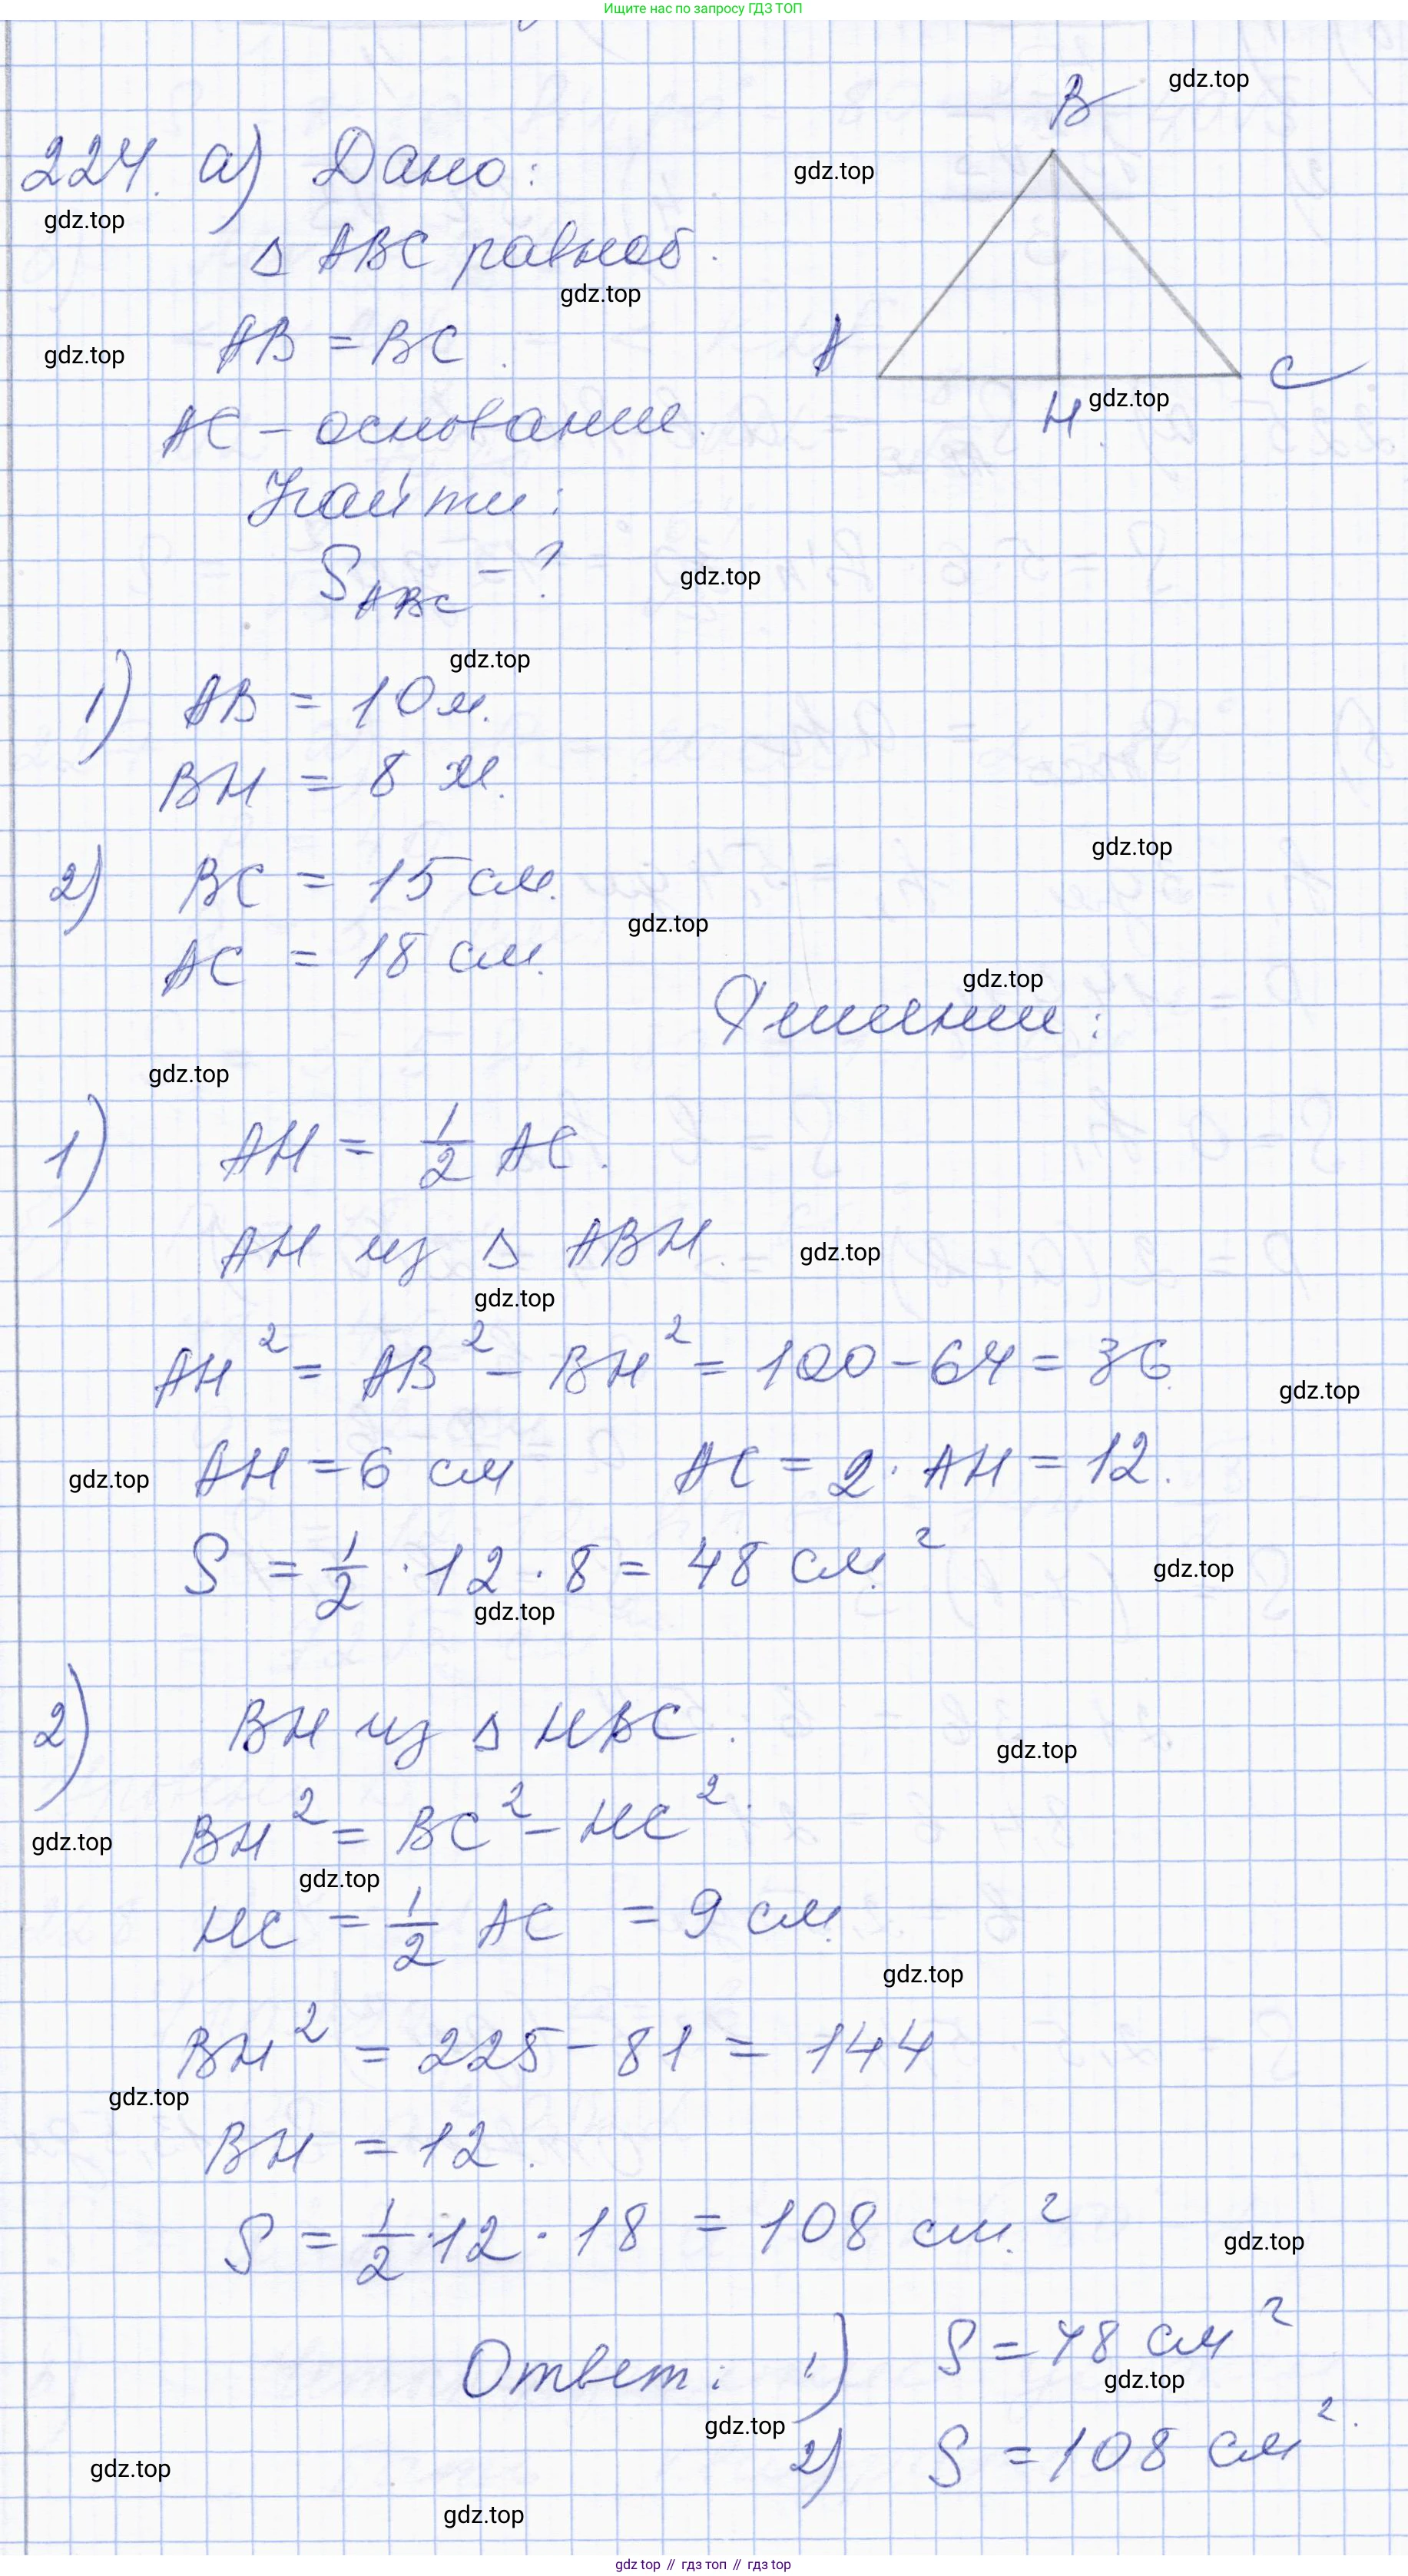 Ищите нас по запросу ГДЗ ТОП
gdz.top
B
224. а) Дано:
gdz.top
gdz.top
△ ABC равноб.
gdz.top
AB = BC.
gdz.top
A
C
H
gdz.top
AC – основание.
Найти:
S ABC - ?
gdz.top
gdz.top
1) AB = 10 м.
BH = 8 м.
2) BC = 15 см.
gdz.top
gdz.top
AC = 18 см.
gdz.top
Решение:
gdz.top
1) AH = 1/2 AC.
AH из △ ABH.
gdz.top
gdz.top
AH² = AB² – BH² = 100 – 64 = 36
gdz.top
AH = 6 см AC = 2 · AH = 12.
gdz.top
S = 1/2 · 12 · 8 = 48 см²
gdz.top
gdz.top
2) BH из △ HBC.
gdz.top
BH² = BC² – HC².
gdz.top
gdz.top
HC = 1/2 AC = 9 см
gdz.top
BH² = 225 – 81 = 144
gdz.top
BH = 12.
S = 1/2 · 12 · 18 = 108 см.²
gdz.top
Ответ: 1) S = 48 см²
gdz.top
gdz.top
2) S = 108 см².
gdz.top
gdz.top
gdz.top // гдз топ // гдз top